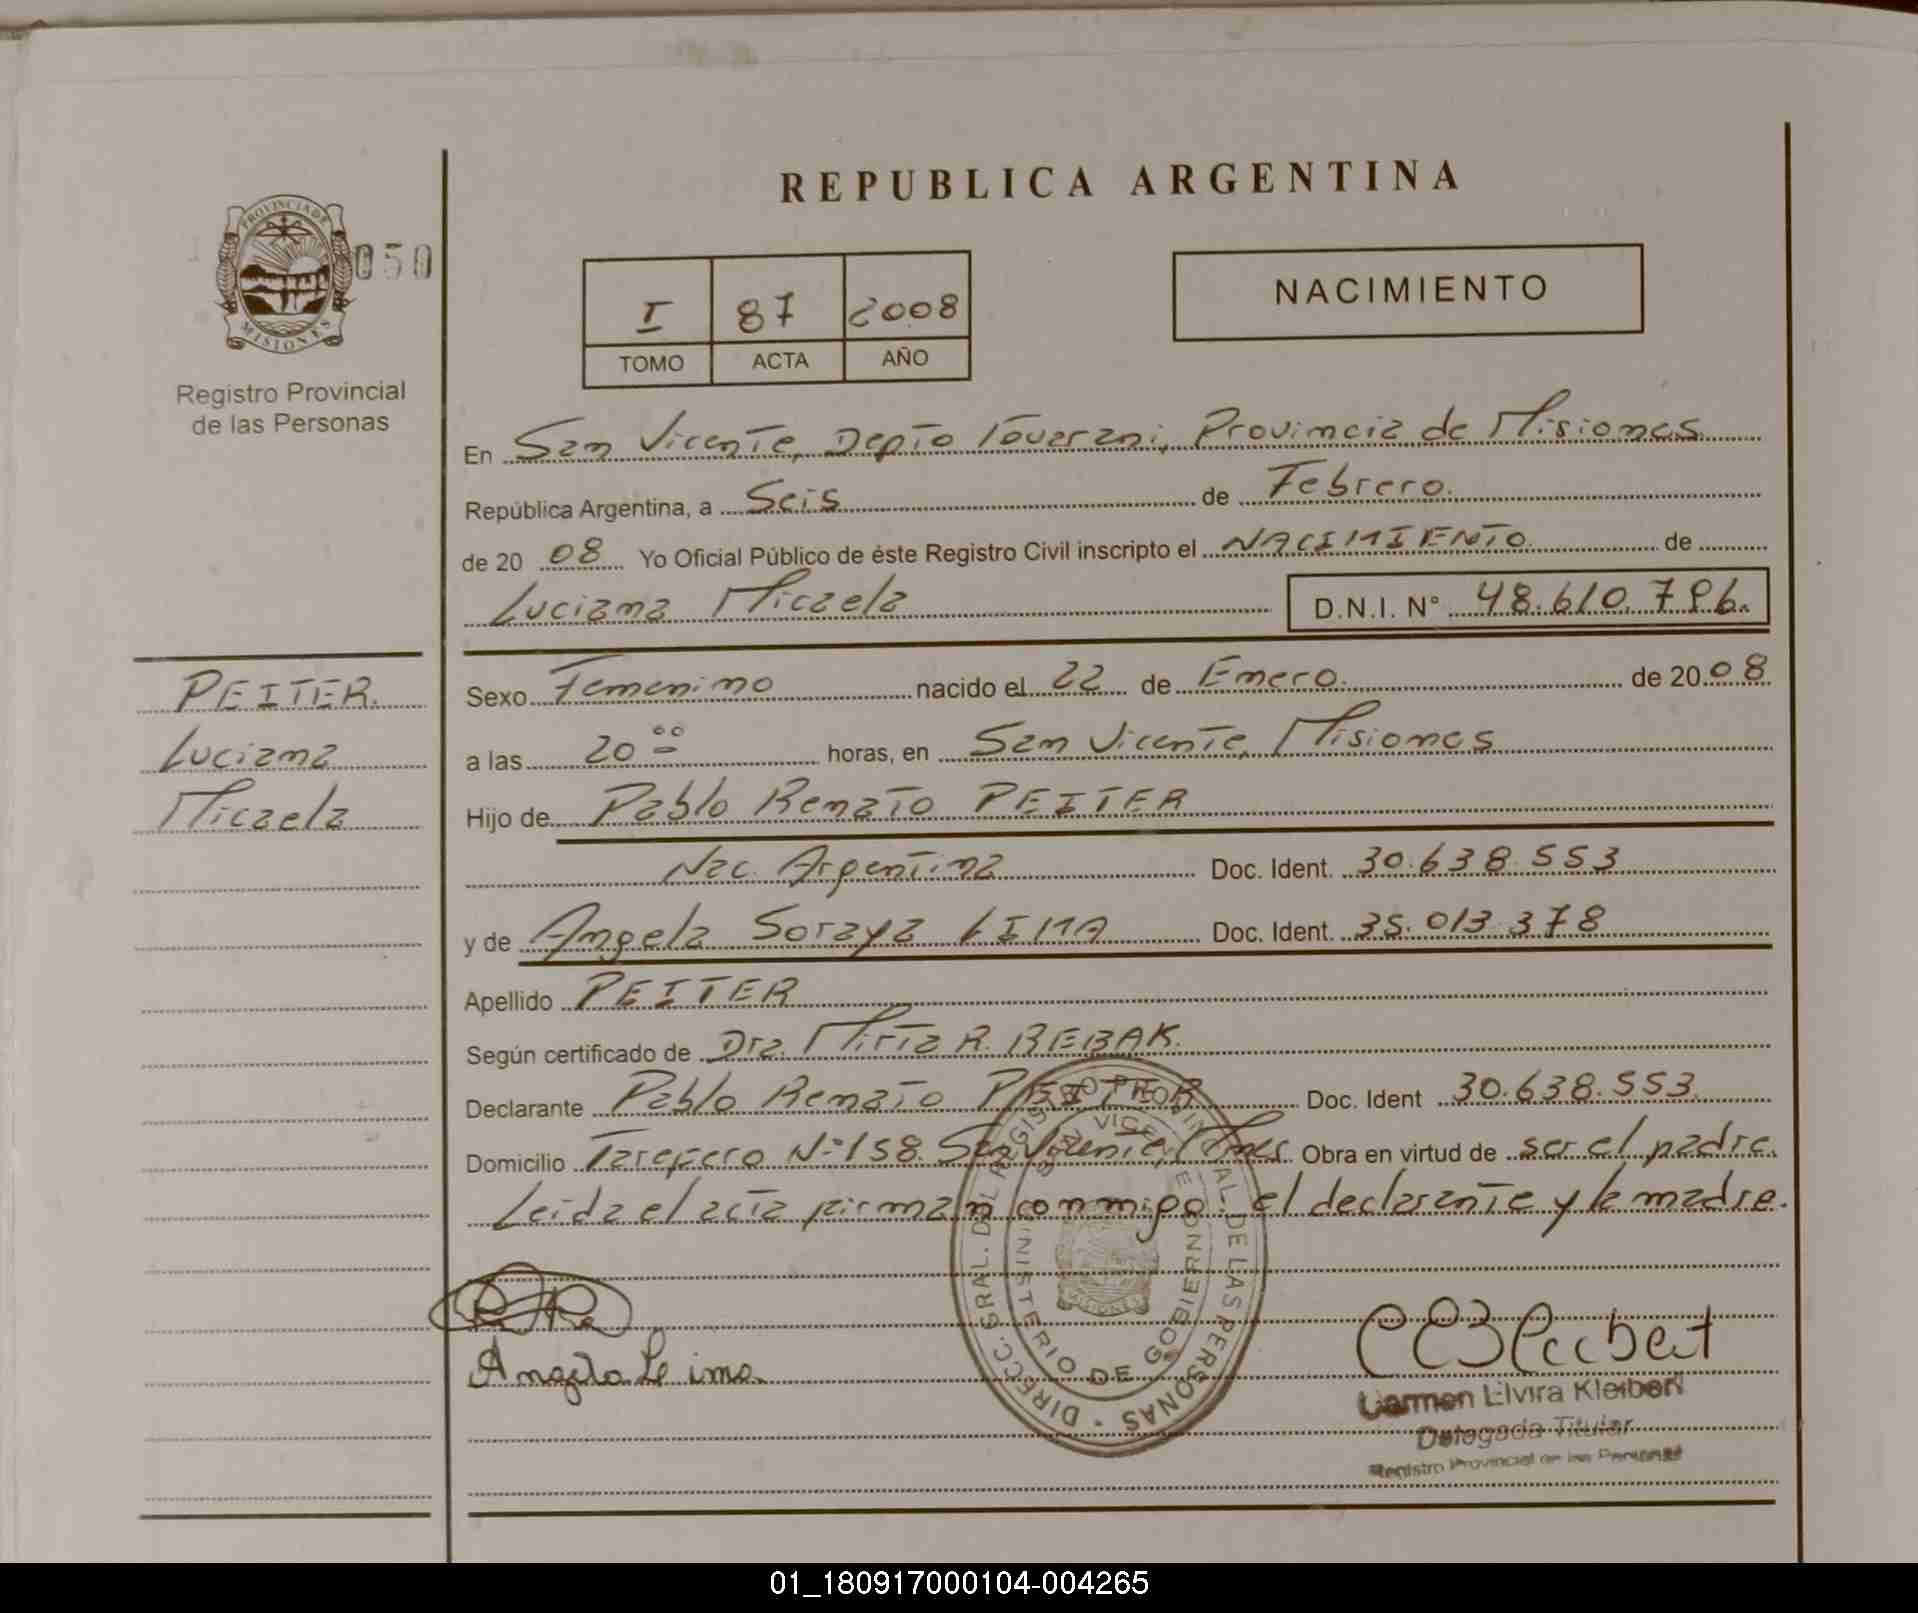 REPUBLICA ARGENTINA
PROVINCIA DE
MISIONES
050
Registro Provincial
de las Personas
I 87 2008
TOMO ACTA AÑO
NACIMIENTO
En San Vicente, Depto Guarani, Provincia de Misiones
República Argentina, a Seis de Febrero.
de 20 08 Yo Oficial Público de éste Registro Civil inscripto el NACIMIENTO de
Luciana Micaela D.N.I. N° 48.610.796.
PEITER.
Luciana
Micaela
Sexo Femenino nacido el 22 de Enero. de 20 08
a las 20 00 horas, en San Vicente, Misiones
Hijo de Pablo Renato PEITER
Nac. Argentina Doc. Ident. 30.638.553
y de Angela Soraya LIMA Doc. Ident. 35.013.378
Apellido PEITER
Según certificado de Dra. Mirta R. REBAK.
Declarante Pablo Renato PEITER Doc. Ident 30.638.553.
Domicilio Tarefero N° 158. San Vicente, Mnes. Obra en virtud de ser el padre.
Leida el acta firman conmigo: el declarante y la madre.
DIRECC. GRAL. DEL REGISTRO PROVINCIAL DE LAS PERSONAS
SAN VICENTE
MINISTERIO DE GOBIERNO
MISIONES
Angela Lima
Carmen Elvira Kleibert
Delegada Titular
Registro Provincial de las Personas
01_180917000104-004265